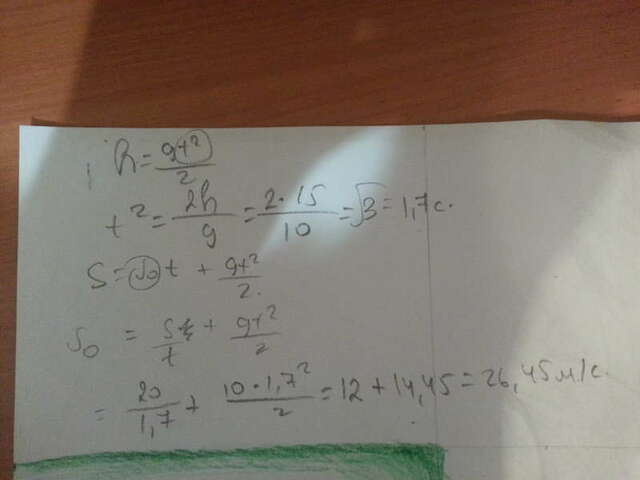 h = gt²/2
t² = 2h/g = 2·15/10 = √3 = 1,7 с.
S = υ₀t + gt²/2.
υ₀ = S/t + gt²/2
= 20/1,7 + 10·1,7²/2 = 12 + 14,45 = 26,45 м/с.